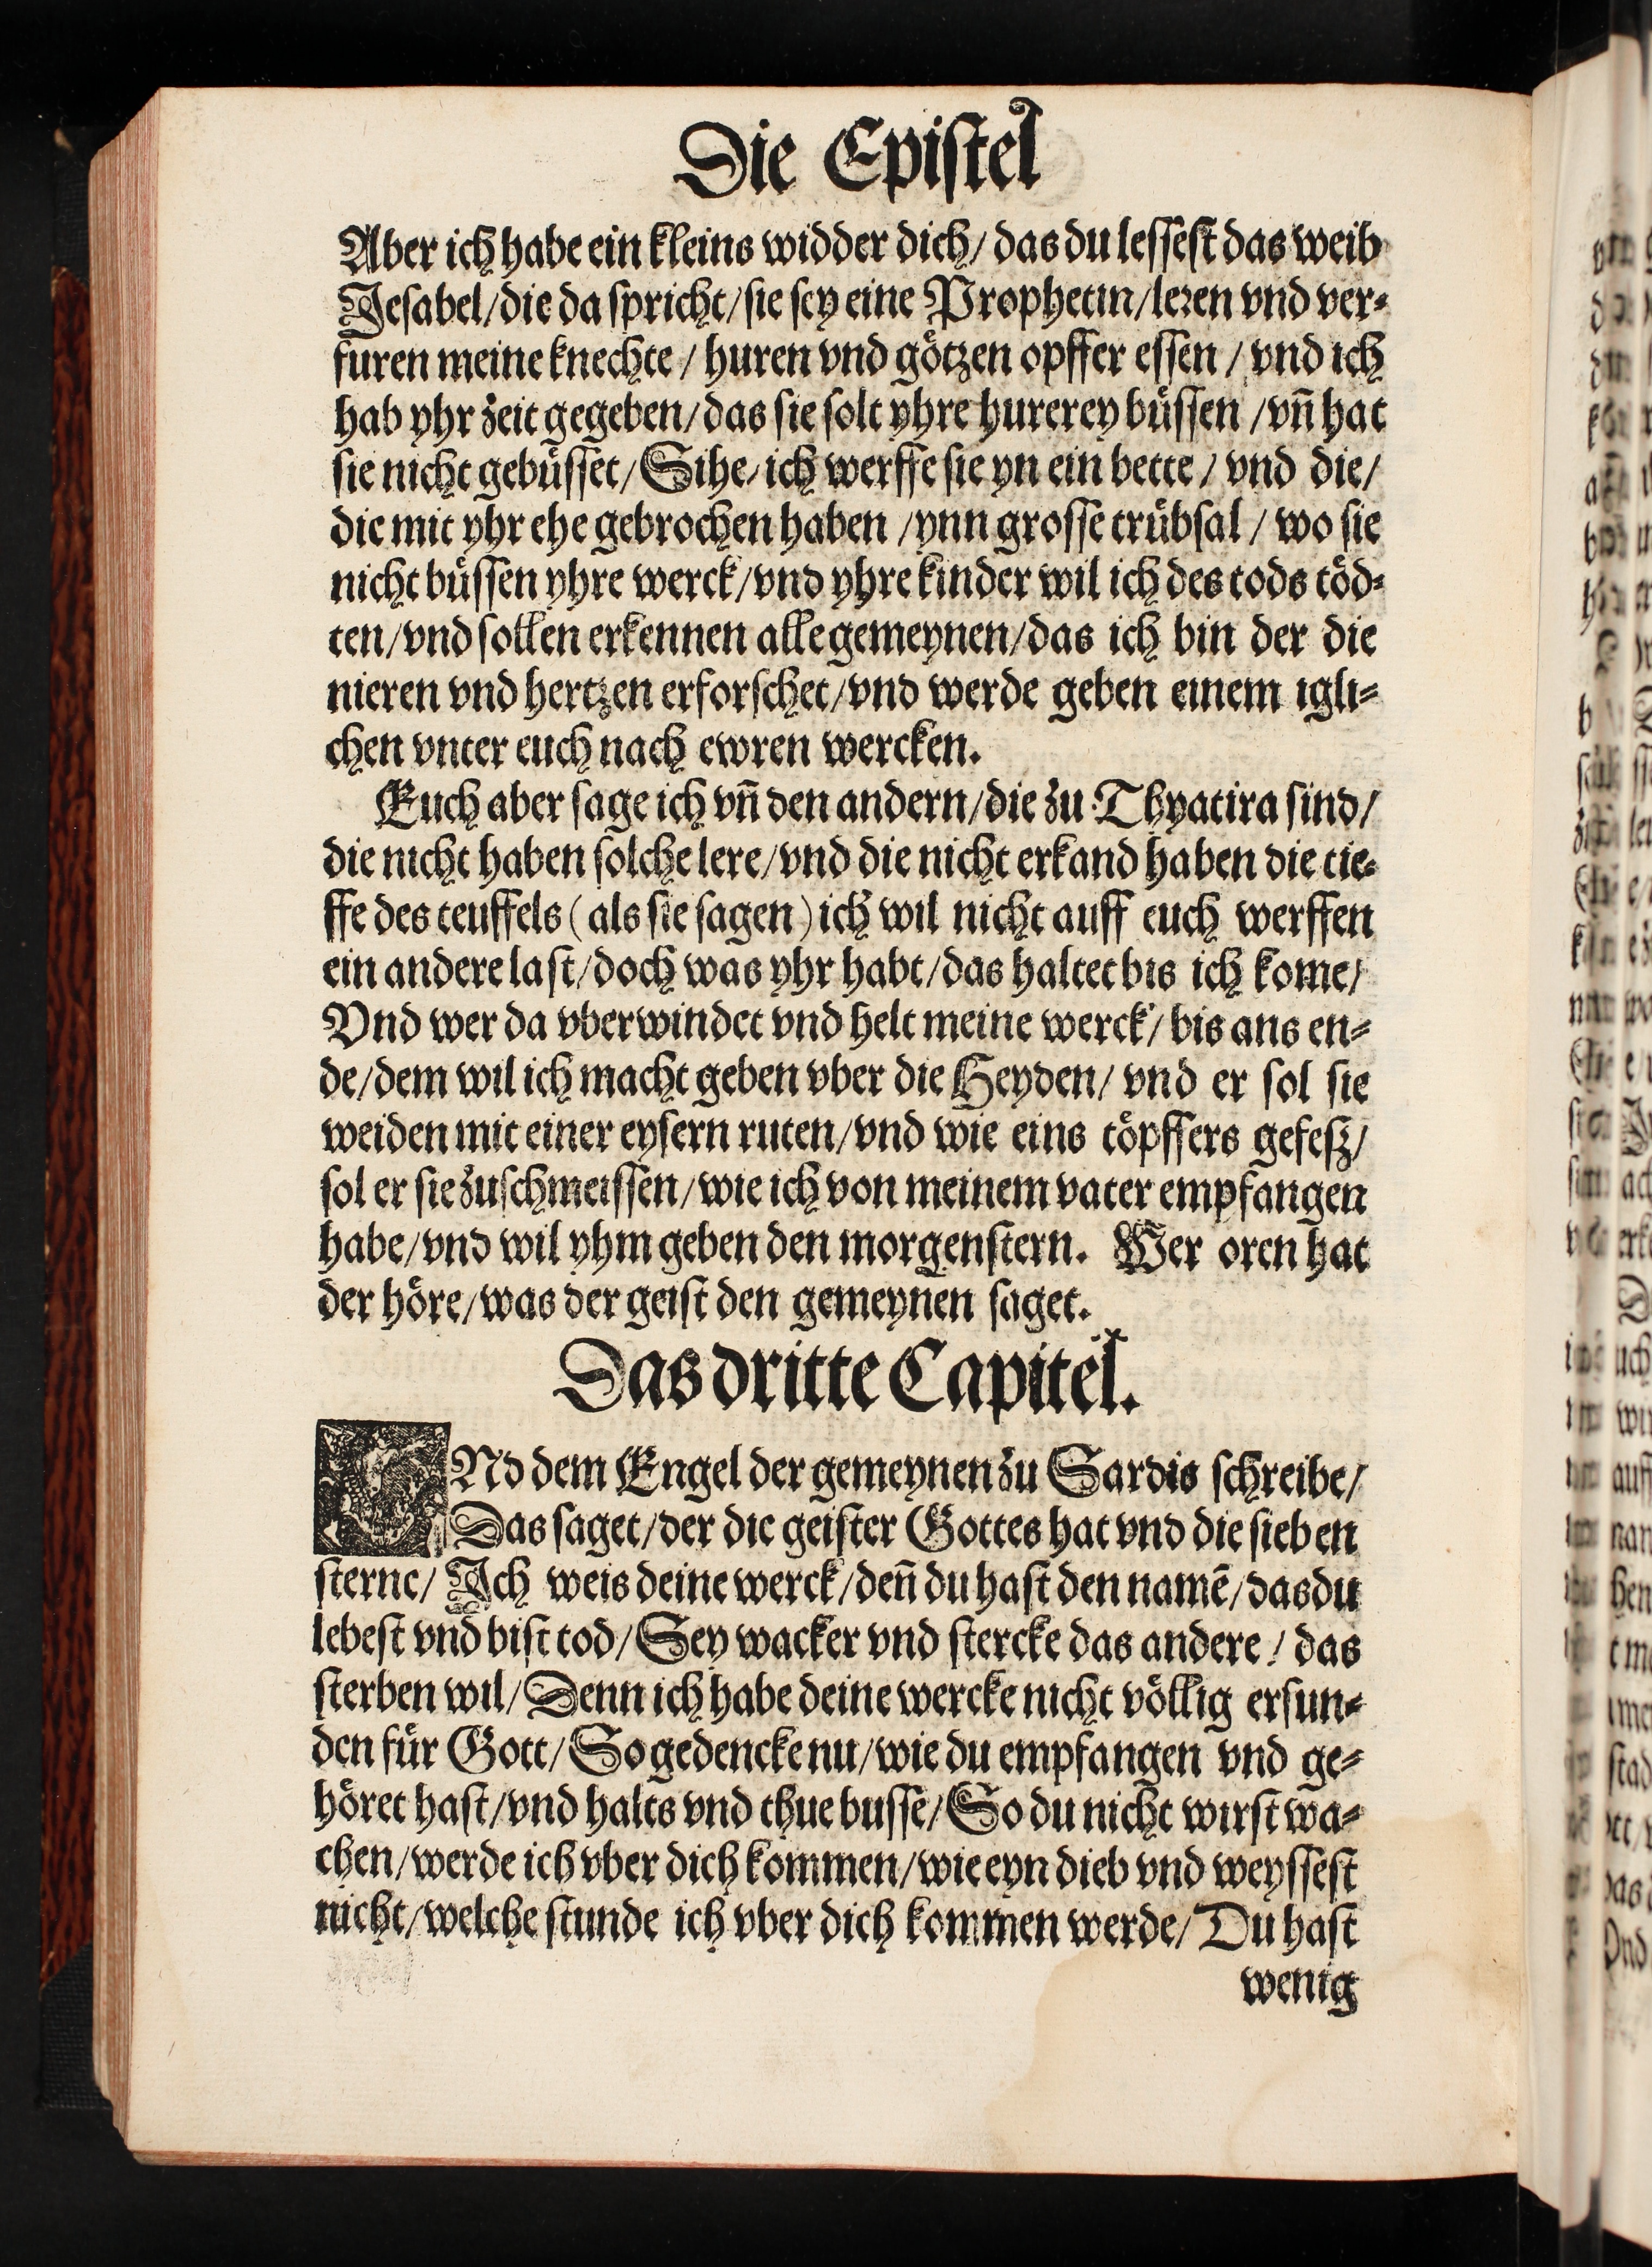 Die Epiſtel
Aber ich habe ein kleins widder dich/ das du leſſeſt das weib
Jeſabel/die da ſpricht/ſie ſey eine Prophetin/leren vnd ver⸗
furen meine knechte/ huren vnd götzen opffer eſſen/ vnd ich
hab yhr zeit gegeben/das ſie ſolt yhre hurerey büſſen/vñ hat
ſie nicht gebüſſet/Sihe/ich werffe ſie yn ein bette/ vnd die/
die mit yhr ehe gebrochen haben/ynn groſſe trübſal/ wo ſie
nicht büſſen yhre werck/vnd yhre kinder wil ich des tods töd⸗
ten/vnd ſollen erkennen alle gemeynen/das ich bin der die
nieren vnd hertzen erforſchet/vnd werde geben einem igli⸗
chen vnter euch nach ewren wercken.
Euch aber ſage ich vñ den andern/die zu Thyatira ſind/
die nicht haben ſolche lere/vnd die nicht erkand haben die tie⸗
ffe des teuffels (als ſie ſagen) ich wil nicht auff euch werffen
ein andere laſt/doch was yhr habt/das haltet bis ich kome/
Vnd wer da vberwindet vnd helt meine werck/ bis ans en⸗
de/dem wil ich macht geben vber die Heyden/ vnd er ſol ſie
weiden mit einer eyſern ruten/vnd wie eins töpffers gefeſz/
ſol er ſie zuſchmeiſſen/wie ich von meinem vater empfangen
habe/vnd wil yhm geben den morgenſtern. Wer oren hat
der höre/was der geiſt den gemeynen ſaget.
Das dritte Capitel.
VNd dem Engel der gemeynen zu Sardis ſchreibe/
Das ſaget/der die geiſter Gottes hat vnd die ſieben
ſterne/ Ich weis deine werck/deñ du haſt den namē/das du
lebeſt vnd biſt tod/Sey wacker vnd ſtercke das andere/ das
ſterben wil/Denn ich habe deine wercke nicht völlig erfun⸗
den für Gott/So gedencke nu/wie du empfangen vnd ge⸗
höret haſt/vnd halts vnd thue buſſe/So du nicht wirſt wa⸗
chen/werde ich vber dich kommen/wie eyn dieb vnd weyſſeſt
nicht/welche ſtunde ich vber dich kommen werde/Du haſt
wenig